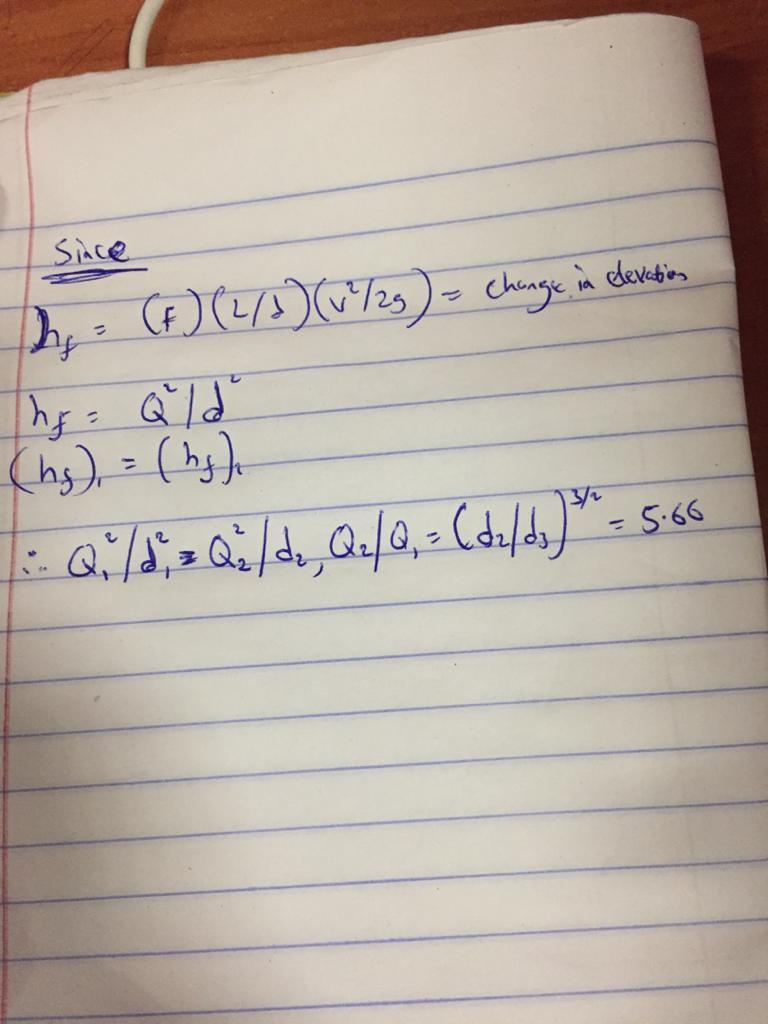 Since
h_f = (f)(L/d)(v²/2g) = change in elevation
h_f = Q²/d²
(h_f)₁ = (h_f)₂
∴ Q₁²/d₁² = Q₂²/d₂, Q₂/Q₁ = (d₂/d₃)^3/2 = 5.66